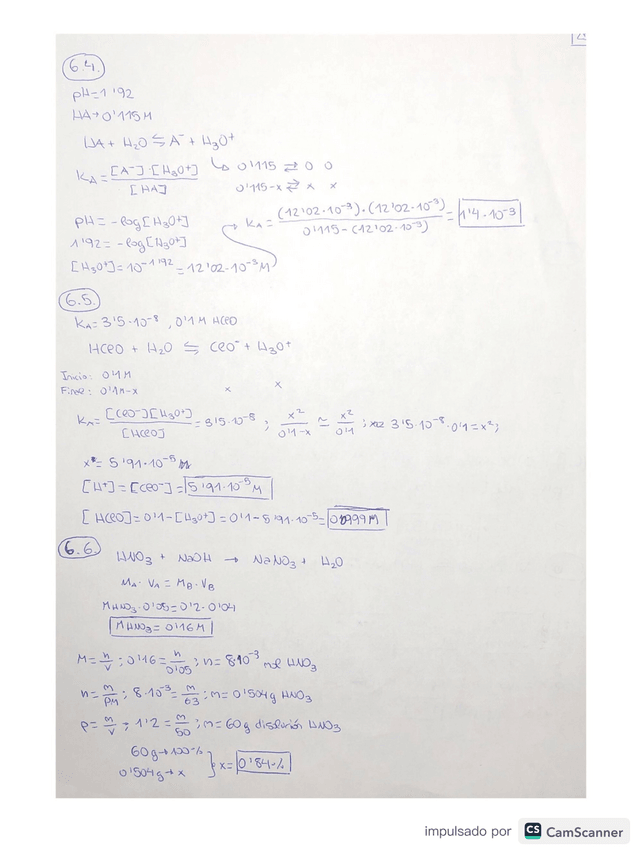 6.4.
pH=1'92
HA→0'115M
HA + H₂O ⇆ A⁻ + H₃O⁺
K_A = [A⁻]·[H₃O⁺] / [HA] ↳ 0'115 ⇄ 0 0
0'115-x ⇄ x x
pH = -log[H₃O⁺] → K_A = (12'02·10⁻³)·(12'02·10⁻³) / 0'115-(12'02·10⁻³) = 1'4·10⁻³
1'92 = -log[H₃O⁺]
[H₃O⁺] = 10⁻¹'⁹² = 12'02·10⁻³M
6.5.
K_A = 3'5·10⁻⁸, 0'1M HClO
HClO + H₂O ⇆ ClO⁻ + H₃O⁺
Inicio: 0'1M
Final: 0'1M-x x x
K_A = [ClO⁻][H₃O⁺] / [HClO] = 3'5·10⁻⁸ ; x² / 0'1-x ≃ x² / 0'1 ; 3'5·10⁻⁸·0'1 = x²;
x = 5'91·10⁻⁵ M
[H⁺] = [ClO⁻] = 5'91·10⁻⁵M
[HClO] = 0'1-[H₃O⁺] = 0'1-5'91·10⁻⁵ = 0'0999M
6.6.
HNO₃ + NaOH → NaNO₃ + H₂O
M_A · V_A = M_B · V_B
M HNO₃·0'05 = 0'2·0'04
M HNO₃ = 0'16M
M = n/V ; 0'16 = n/0'05 ; n = 8·10⁻³ mol HNO₃
n = m/PM ; 8·10⁻³ = m/63 ; m = 0'504g HNO₃
ρ = m/V ; 1'2 = m/50 ; m = 60g disolución HNO₃
60g → 100% } x = 0'84%
0'504g → x
impulsado por CS CamScanner